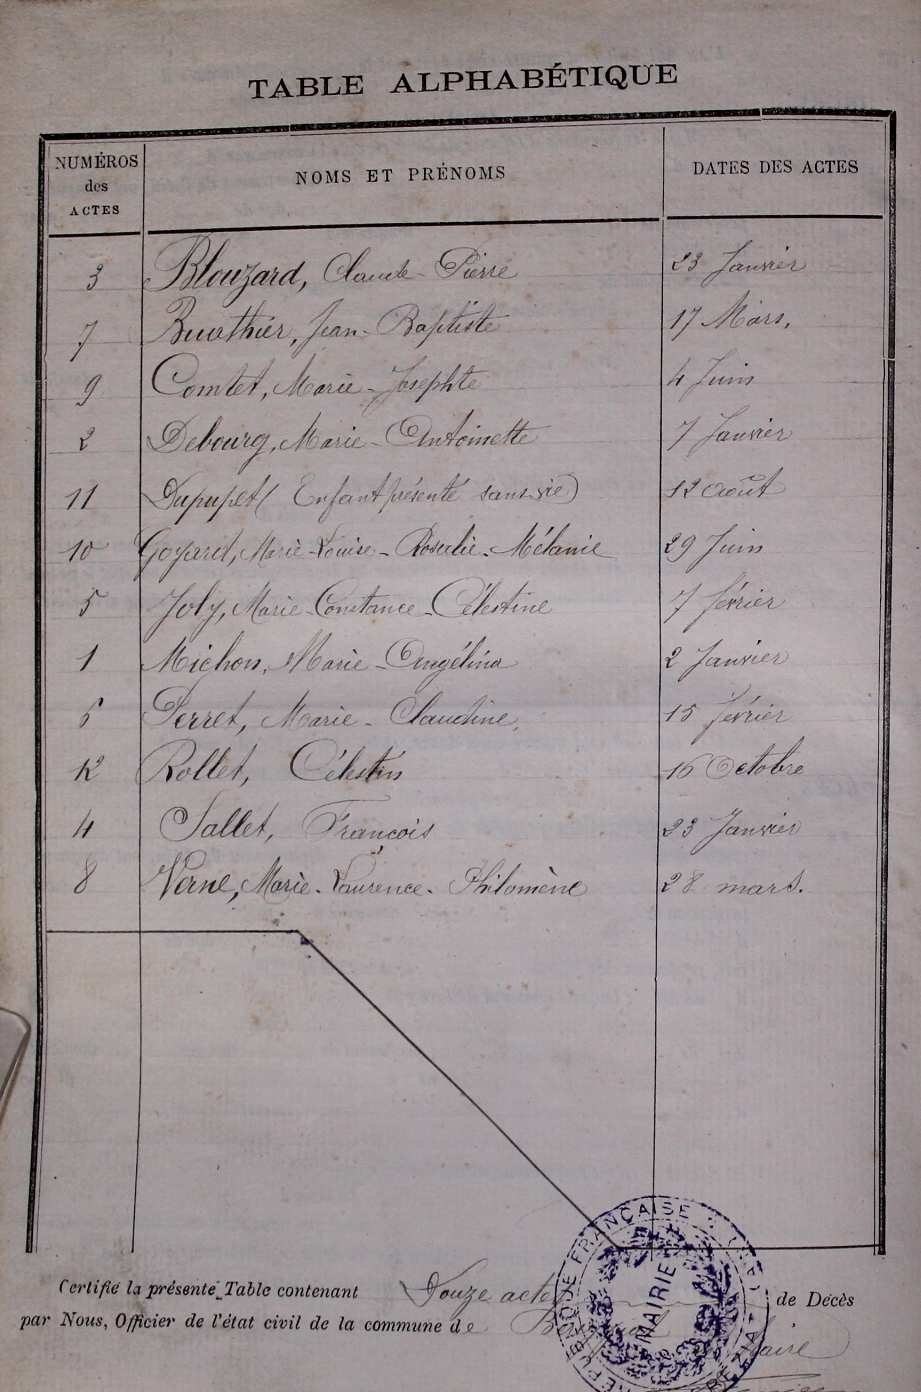 TABLE ALPHABÉTIQUE
NUMÉROS des ACTES NOMS ET PRÉNOMS DATES DES ACTES
3 Blouzard, Claude-Pierre 23 Janvier
7 Buathier, Jean-Baptiste 17 Mars.
9 Comtet, Marie-Josephte 4 Juin
2 Debourg, Marie-Antoinette 7 Janvier
11 Dupupet (Enfant présenté sans vie) 12 août
10 Goyard, Marie-Louise-Rosalie-Mélanie 29 Juin
5 Joly, Marie-Constance-Célestine 7 février
1 Michon, Marie-Angélina 2 Janvier
6 Perret, Marie-Claudine 15 février
12 Rollet, Célestin 16 Octobre
4 Sallet, François 23 Janvier
8 Verne, Marie-Laurence-Philomène 28 mars.
Certifié la présente Table contenant Douze actes de Décès
par Nous, Officier de l'état civil de la commune de
RÉPUBLIQUE FRANÇAISE
MAIRIE